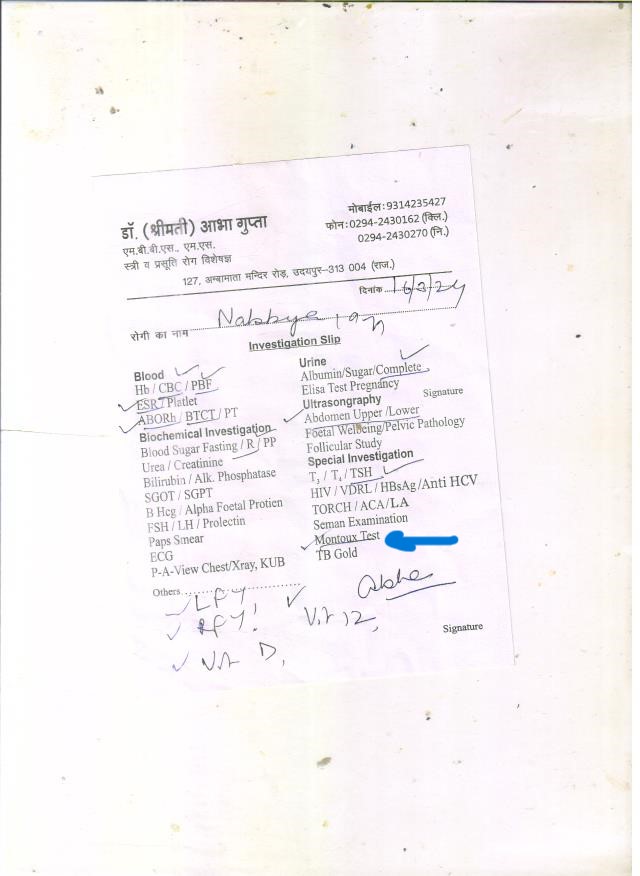 डॉ. (श्रीमती) आभा गुप्ता
एम.बी.बी.एस., एम.एस.
स्त्री व प्रसूति रोग विशेषज्ञ
मोबाईल:9314235427
फोन:0294-2430162 (क्लि.)
0294-2430270 (नि.)
127, अम्बामाता मन्दिर रोड़, उदयपुर-313 004 (राज.)
दिनांक
रोगी का नाम
Investigation Slip
Blood
Hb / CBC / PBF
ESR / Platlet
ABORh / BTCT / PT
Biochemical Investigation
Blood Sugar Fasting / R / PP
Urea / Creatinine
Bilirubin / Alk. Phosphatase
SGOT / SGPT
B Hcg / Alpha Foetal Protien
FSH / LH / Prolectin
Paps Smear
ECG
P-A-View Chest/Xray, KUB
Others
Urine
Albumin/Sugar/Complete
Elisa Test Pregnancy
Signature
Ultrasongraphy
Abdomen Upper /Lower
Foetal Wellbeing/Pelvic Pathology
Follicular Study
Special Investigation
T3 / T4 / TSH
HIV / VDRL / HBsAg / Anti HCV
TORCH / ACA / LA
Seman Examination
Montoux Test
TB Gold
Vit 12,
Vit D,
Signature